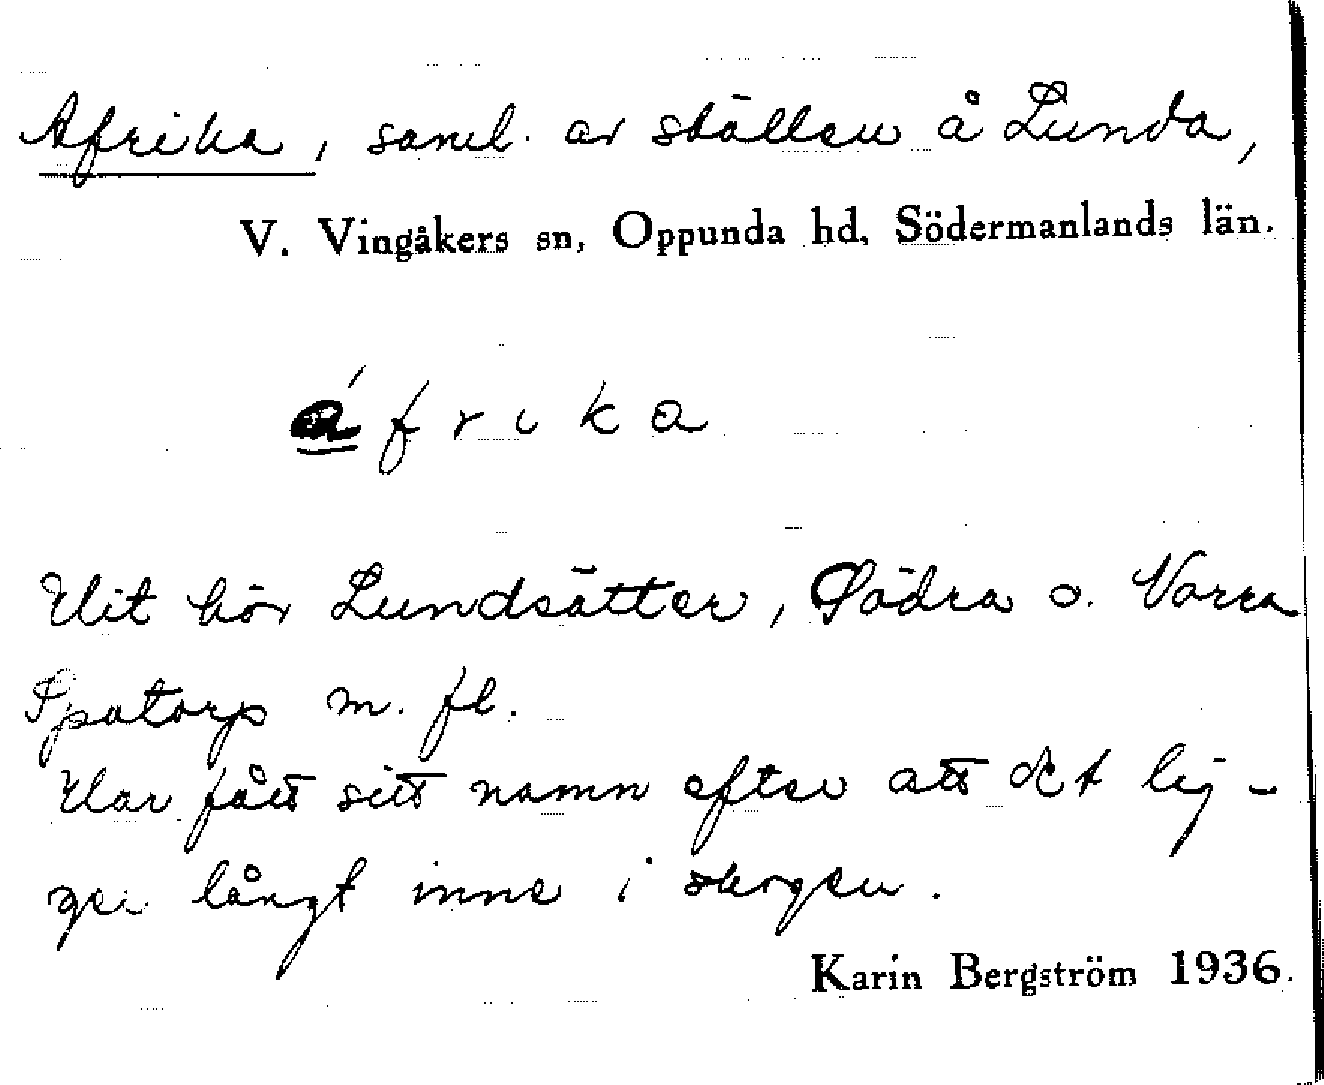 Afrika, saml. av ställen å Lunda,
V. Vingåkers sn, Oppunda hd, Södermanlands län.
áfrika
Hit hör Lundsätter, Södra o. Norra
Spatorp m. fl.
Har fått sitt namn efter att det lig-
ger långt inne i skogen.
Karin Bergström 1936.